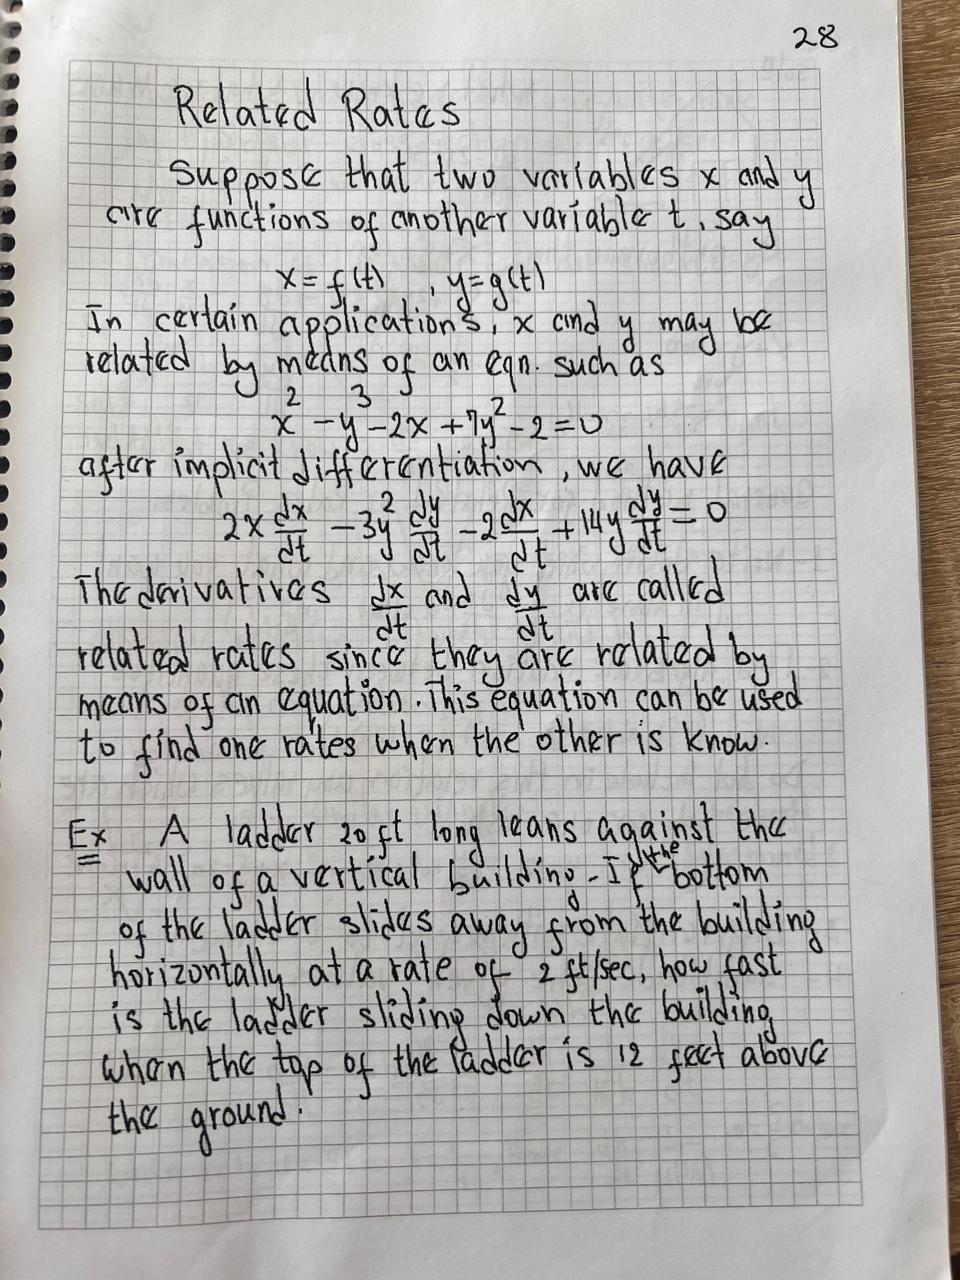 28
Related Rates
Suppose that two variables x and y
are functions of another variable t, say
x = f(t) , y = g(t)
In certain applications, x and y may be
related by means of an eqn. such as
x² - y³ - 2x + 7y² - 2 = 0
after implicit differentiation, we have
2x dx/dt - 3y² dy/dt - 2 dx/dt + 14y dy/dt = 0
The derivatives dx/dt and dy/dt are called
related rates since they are related by
means of an equation. This equation can be used
to find one rates when the other is know.
Ex A ladder 20 ft long leans against the
wall of a vertical building. If the bottom
of the ladder slides away from the building
horizontally at a rate of 2 ft/sec, how fast
is the ladder sliding down the building
when the top of the ladder is 12 feet above
the ground.